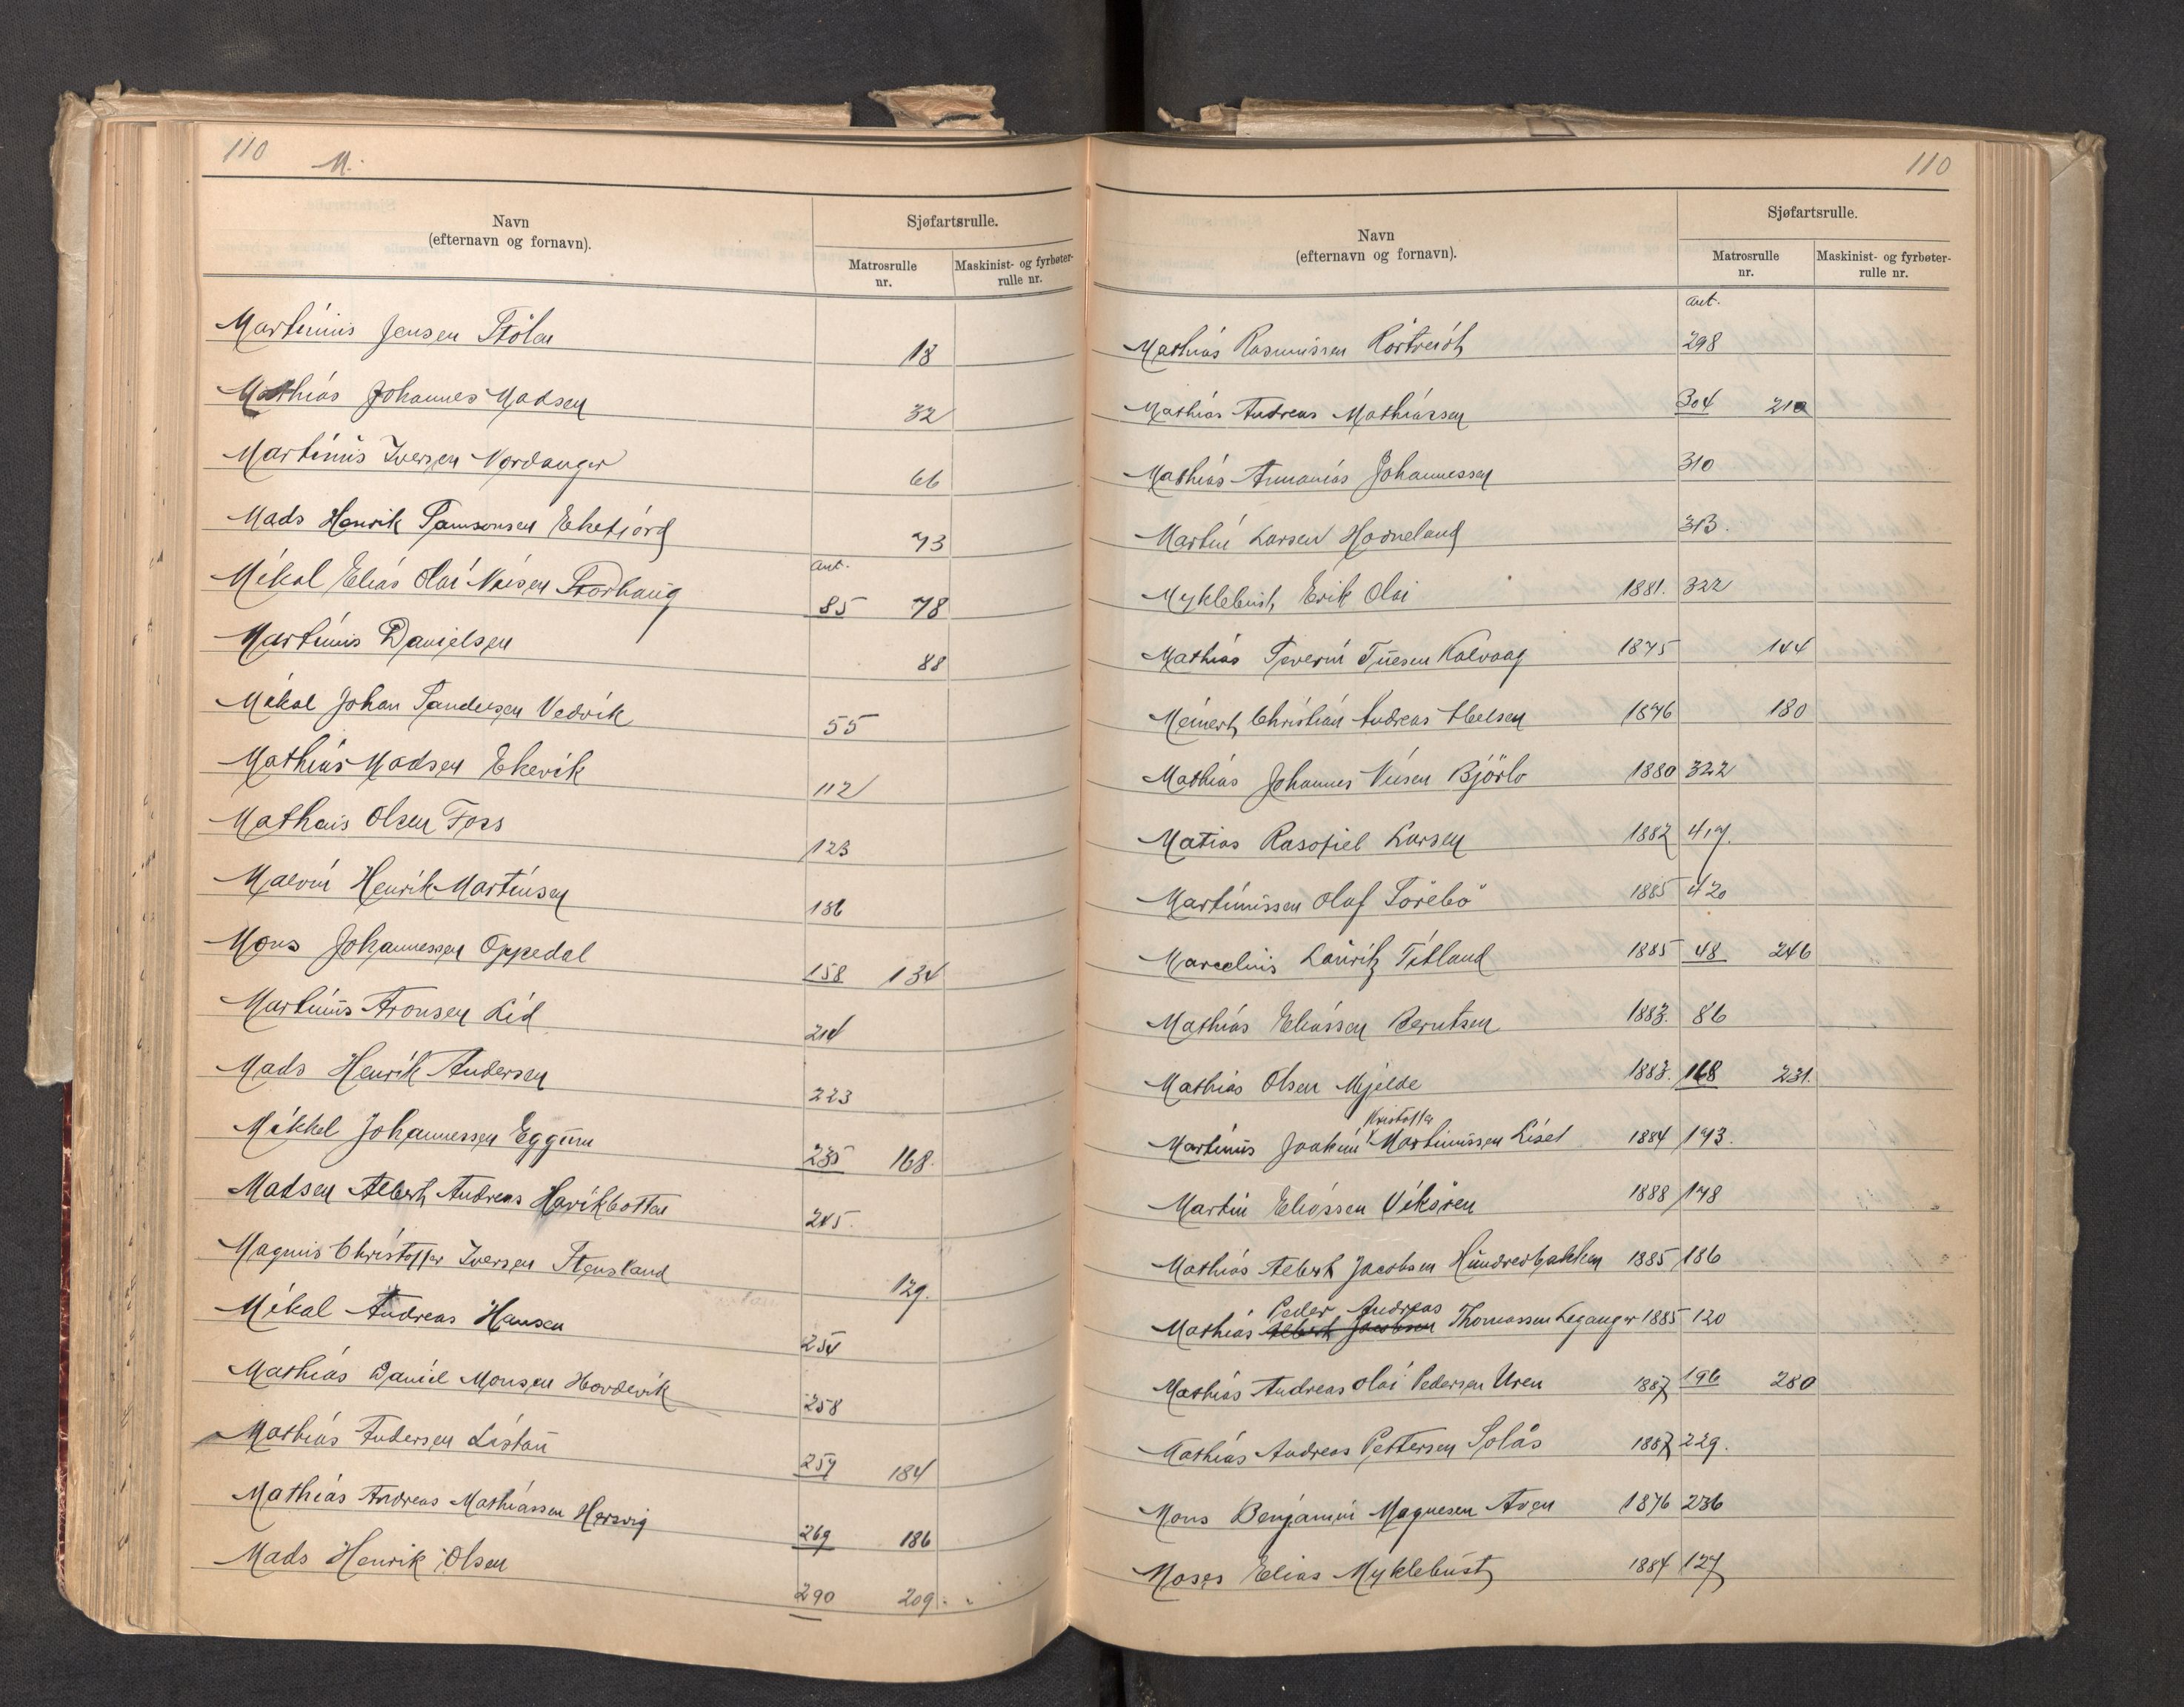 110 M.
Navn
(efternavn og fornavn).
Sjøfartsrulle.
Matrosrulle
nr.
Maskinist- og fyrbøter-
rulle nr.
Martinius Jensen Stölen 18
Mathias Johannes Madsen 32
Martinus Iversen Nordanger 66
Mads Henrik Samsonsen Ekefjord 73
ant.
Mikal Elias Olai Nilsen Storhaug 85 78
Martinus Danielsen 88
Mikal Johan Sandersen Vedvik 55
Mathias Madsen Ekevik 112
Mathais Olsen Foss 123
Malvin Henrik Martinsen 136
Mons Johannessen Oppedal 158 134
Martinus Aronsen Lid 214
Mads Henrik Andersen 223
Mikkel Johannessen Eggum 235 168.
Madsen Albert Andreas Havikbotten 245.
Magnus Christoffer Iversen Stensland 129.
Mikal Andreas Hansen 254
Mathias Daniel Monsen Hovdevik 258
Mathias Andersen Listau 259 184
Mathias Andreas Mathiassen Hersvig 269 186
Mads Henrik Olsen 290 209.
110
Navn
(efternavn og fornavn).
Sjøfartsrulle.
Matrosrulle
nr.
Maskinist- og fyrbøter-
rulle nr.
ant.
Mathias Rasmussen Körtveidt 298
Mathias Andreas Mathiassen 304 210
Mathias Annanias Johannessen 310
Martin Larsen Horneland 313.
Myklebust, Erik Olai 1881. 322
Mathias Severin Kalvaag 1875 144
Meinert Christian Andreas 1876 180
Mathias Johannes Björlo 1880 322
Matias Rasofiel Larsen 1882 417.
Martinussen Olaf Törebö 1885 420
Marcelius Lauritz Titland 1885 48 246
Mathias Eliassen Berntsen 1883. 86
Mathias Olsen Mjelde 1883. 168 231.
Kristoffer
Martinus Joakim Martinussen Liset 1884 173.
Martin Eliassen Viksören 1888 178
Mathias Albert Jacobsen Hundredbakken 1885 186
Peder Andreas
Mathias Albert Jacobsen Thomassen Leganger 1885 120
Mathias Andreas Olai Pedersen Uren 1887 196 280
Mathias Andreas Pettersen Solås 1887 229.
Mons Benjamin Magnesen Aven 1876 236
Moses Elias Myklebust 1884 127